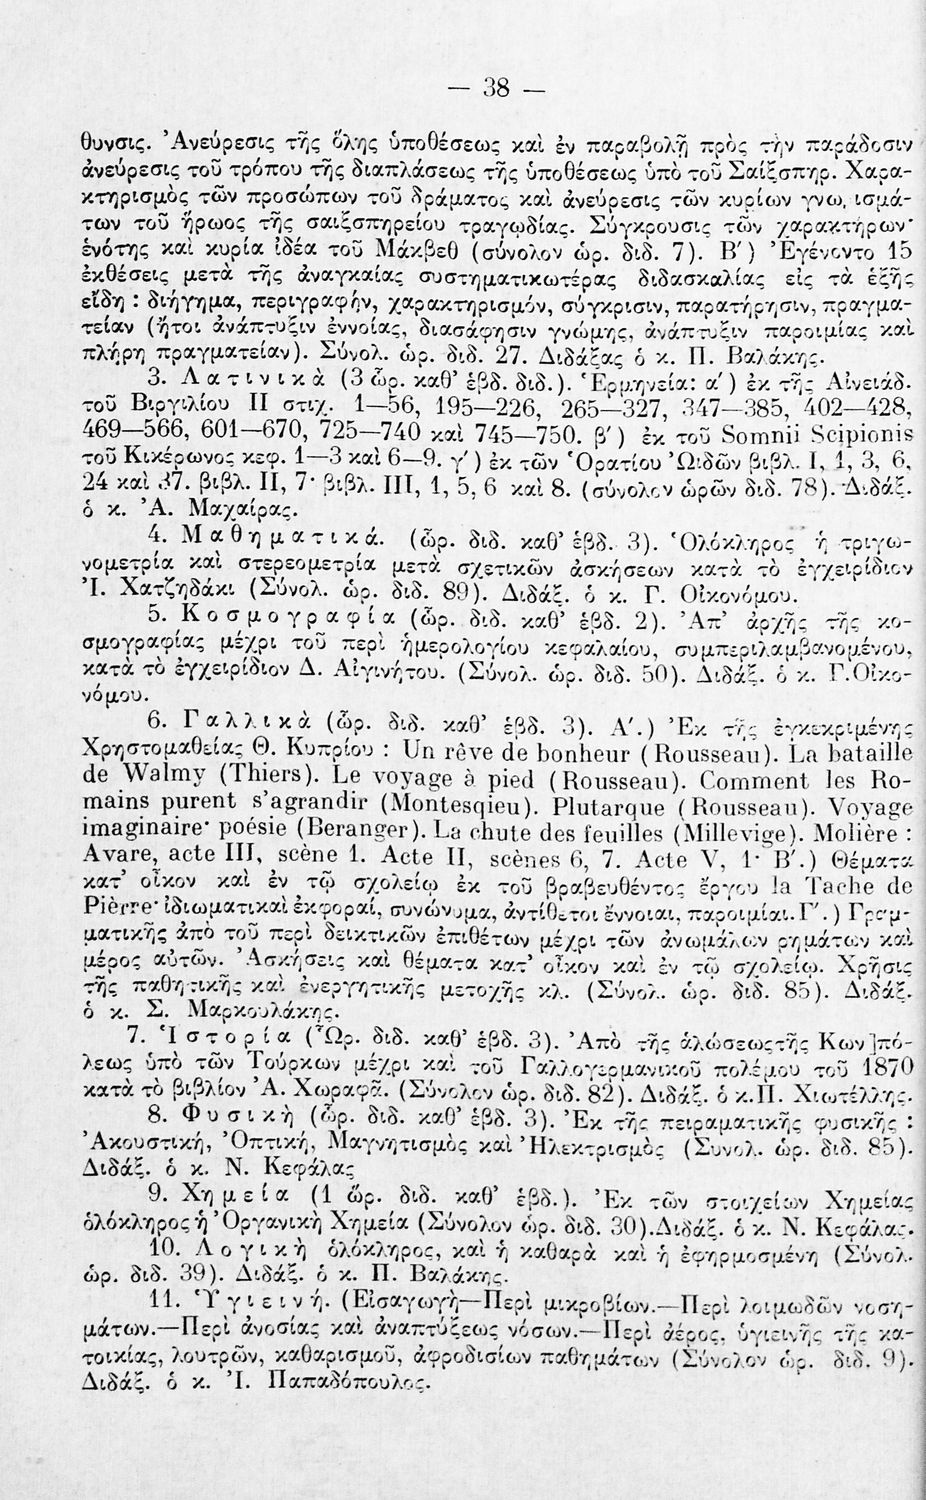 — 38 —
θυνσις. Ἀνεύρεσις τῆς ὅλης ὑποθέσεως καὶ ἐν παραβολῇ πρὸς τὴν παράδοσιν
ἀνεύρεσις τοῦ τρόπου τῆς διαπλάσεως τῆς ὑποθέσεως ὑπὸ τοῦ Σαίξσπηρ. Χαρα-
κτηρισμὸς τῶν προσώπων τοῦ δράματος καὶ ἀνεύρεσις τῶν κυρίων γνω, ισμά-
των τοῦ ἥρωος τῆς σαιξσπηρείου τραγῳδίας. Σύγκρουσις τῶν χαρακτήρων·
ἑνότης καὶ κυρία ἰδέα τοῦ Μάκβεθ (σύνολον ὡρ. διδ. 7). Β′) Ἐγένοντο 15
ἐκθέσεις μετὰ τῆς ἀναγκαίας συστηματικωτέρας διδασκαλίας εἰς τὰ ἑξῆς
εἴδη : διήγημα, περιγραφήν, χαρακτηρισμόν, σύγκρισιν, παρατήρησιν, πραγμα-
τείαν (ἤτοι ἀνάπτυξιν ἐννοίας, διασάφησιν γνώμης, ἀνάπτυξιν παροιμίας καὶ
πλήρη πραγματείαν). Σύνολ. ὡρ. διδ. 27. Διδάξας ὁ κ. Π. Βαλάκης.
3. Λατινικὰ (3 ὧρ. καθ’ ἑβδ. διδ.). Ἑρμηνεία: α′) ἐκ τῆς Αἰνειάδ.
τοῦ Βιργιλίου II στιχ. 1—56, 195—226, 265—327, 347—385, 402—428,
469—566, 601—670, 725—740 καὶ 745—750. β′) ἐκ τοῦ Somnii Scipionis
τοῦ Κικέρωνος κεφ. 1—3 καὶ 6—9. γ′) ἐκ τῶν Ὁρατίου Ὠιδῶν βιβλ. I, 1, 3, 6,
24 καὶ 37. βιβλ. II, 7· βιβλ. III, 1, 5, 6 καὶ 8. (σύνολον ὡρῶν διδ. 78). Διδάξ.
ὁ κ. Ἀ. Μαχαίρας.
4. Μαθηματικά. (ὧρ. διδ. καθ’ ἑβδ. 3). Ὁλόκληρος ἡ τριγω-
νομετρία καὶ στερεομετρία μετὰ σχετικῶν ἀσκήσεων κατὰ τὸ ἐγχειρίδιον
Ἰ. Χατζηδάκι (Σύνολ. ὡρ. διδ. 89). Διδάξ. ὁ κ. Γ. Οἰκονόμου.
5. Κοσμογραφία (ὧρ. διδ. καθ’ ἑβδ. 2). Ἀπ’ ἀρχῆς τῆς κο-
σμογραφίας μέχρι τοῦ περὶ ἡμερολογίου κεφαλαίου, συμπεριλαμβανομένου,
κατὰ τὸ ἐγχειρίδιον Δ. Αἰγινήτου. (Σύνολ. ὡρ. διδ. 50). Διδάξ. ὁ κ. Γ.Οἰκο-
νόμου.
6. Γαλλικὰ (ὧρ. διδ. καθ’ ἑβδ. 3). Α′.) Ἐκ τῆς ἐγκεκριμένης
Χρηστομαθείας Θ. Κυπρίου : Un rêve de bonheur (Rousseau). La bataille
de Walmy (Thiers). Le voyage à pied (Rousseau). Comment les Ro-
mains purent s’agrandir (Montesqieu). Plutarque (Rousseau). Voyage
imaginaire· poésie (Beranger). La chute des feuilles (Millevige). Molière :
Avare, acte III, scène 1. Acte II, scènes 6, 7. Acte V, 1· Β′.) Θέματα
κατ’ οἶκον καὶ ἐν τῷ σχολείῳ ἐκ τοῦ βραβευθέντος ἔργου la Tache de
Pièrre· ἰδιωματικαὶ ἐκφοραί, συνώνυμα, ἀντίθετοι ἔννοιαι, παροιμίαι. Γ′.) Γραμ-
ματικῆς ἀπὸ τοῦ περὶ δεικτικῶν ἐπιθέτων μέχρι τῶν ἀνωμάλων ρημάτων καὶ
μέρος αὐτῶν. Ἀσκήσεις καὶ θέματα κατ’ οἶκον καὶ ἐν τῷ σχολείῳ. Χρῆσις
τῆς παθητικῆς καὶ ἐνεργητικῆς μετοχῆς κλ. (Σύνολ. ὡρ. διδ. 85). Διδάξ.
ὁ κ. Σ. Μαρκουλάκης.
7. Ἱστορία (Ὧρ. διδ. καθ’ ἑβδ. 3). Ἀπὸ τῆς ἁλώσεως τῆς Κων]πό-
λεως ὑπὸ τῶν Τούρκων μέχρι καὶ τοῦ Γαλλογερμανικοῦ πολέμου τοῦ 1870
κατὰ τὸ βιβλίον Ἀ. Χωραφᾶ. (Σύνολον ὡρ. διδ. 82). Διδάξ. ὁ κ.Π. Χιωτέλλης.
8. Φυσικὴ (ὧρ. διδ. καθ’ ἑβδ. 3). Ἐκ τῆς πειραματικῆς φυσικῆς :
Ἀκουστική, Ὀπτική, Μαγνητισμὸς καὶ Ἠλεκτρισμὸς (Συνολ. ὡρ. διδ. 85).
Διδάξ. ὁ κ. Ν. Κεφάλας
9. Χημεία (1 ὥρ. διδ. καθ’ ἑβδ.). Ἐκ τῶν στοιχείων Χημείας
ὁλόκληρος ἡ Ὀργανικὴ Χημεία (Σύνολον ὡρ. διδ. 30).Διδάξ. ὁ κ. Ν. Κεφάλας.
10. Λογικὴ ὁλόκληρος, καὶ ἡ καθαρὰ καὶ ἡ ἐφηρμοσμένη (Σύνολ.
ὡρ. διδ. 39). Διδάξ. ὁ κ. Π. Βαλάκης.
11. Ὑγιεινή. (Εἰσαγωγὴ—Περὶ μικροβίων.—Περὶ λοιμωδῶν νοση-
μάτων.—Περὶ ἀνοσίας καὶ ἀναπτύξεως νόσων.—Περὶ ἀέρος, ὑγιεινῆς τῆς κα-
τοικίας, λουτρῶν, καθαρισμοῦ, ἀφροδισίων παθημάτων (Σύνολον ὡρ. διδ. 9).
Διδάξ. ὁ κ. Ἰ. Παπαδόπουλος.